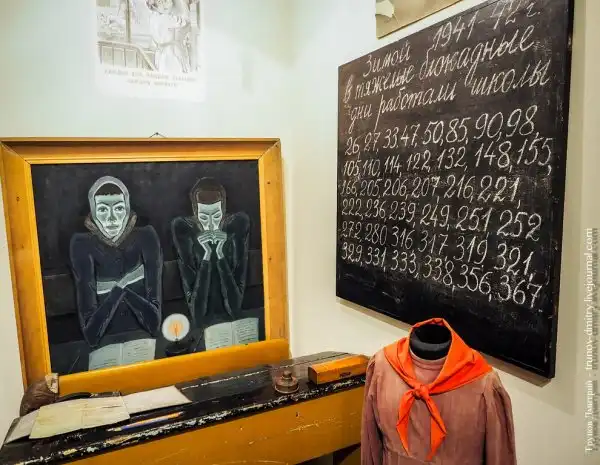 Зимой 1941-42 г.
В тяжелые блокадные
дни работали школы
26, 27, 33 47, 50, 85, 90, 98,
105, 110, 114, 122, 132, 148, 155,
166, 205 206, 207, 216, 221,
222, 236, 239 249, 251 252
272 280 316 317 319 321,
329, 331 333, 338, 356, 367
Трунов Дмитрий - trunov-dmitry.livejournal.com